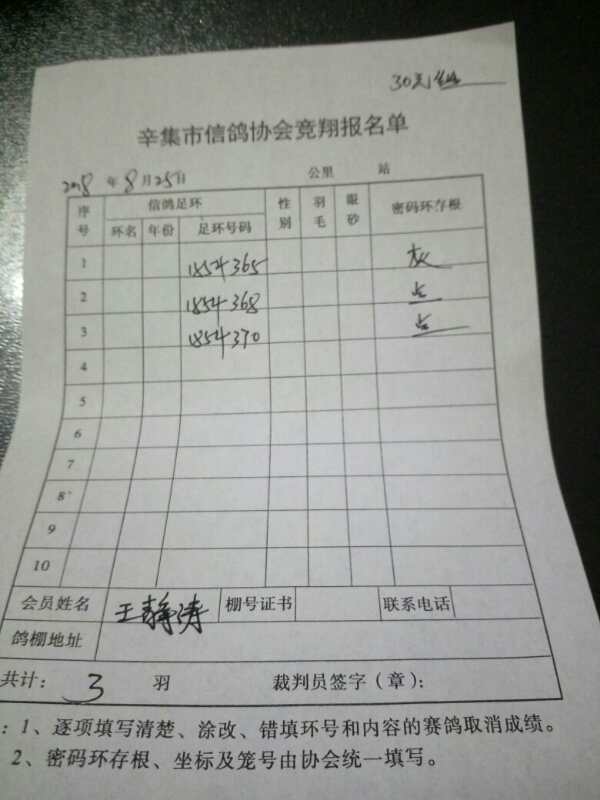 30元组
辛集市信鸽协会竞翔报名单
2018 年 8 月 25 日 公里 站
序号 信鸽足环 性别 羽毛 眼砂 密码环存根
环名 年份 足环号码
1 1854365 灰
2 1854368 点
3 1854370 点
4
5
6
7
8
9
10
会员姓名 王静涛 棚号证书 联系电话
鸽棚地址
共计: 3 羽 裁判员签字(章):
:1、逐项填写清楚、涂改、错填环号和内容的赛鸽取消成绩。
2、密码环存根、坐标及笼号由协会统一填写。